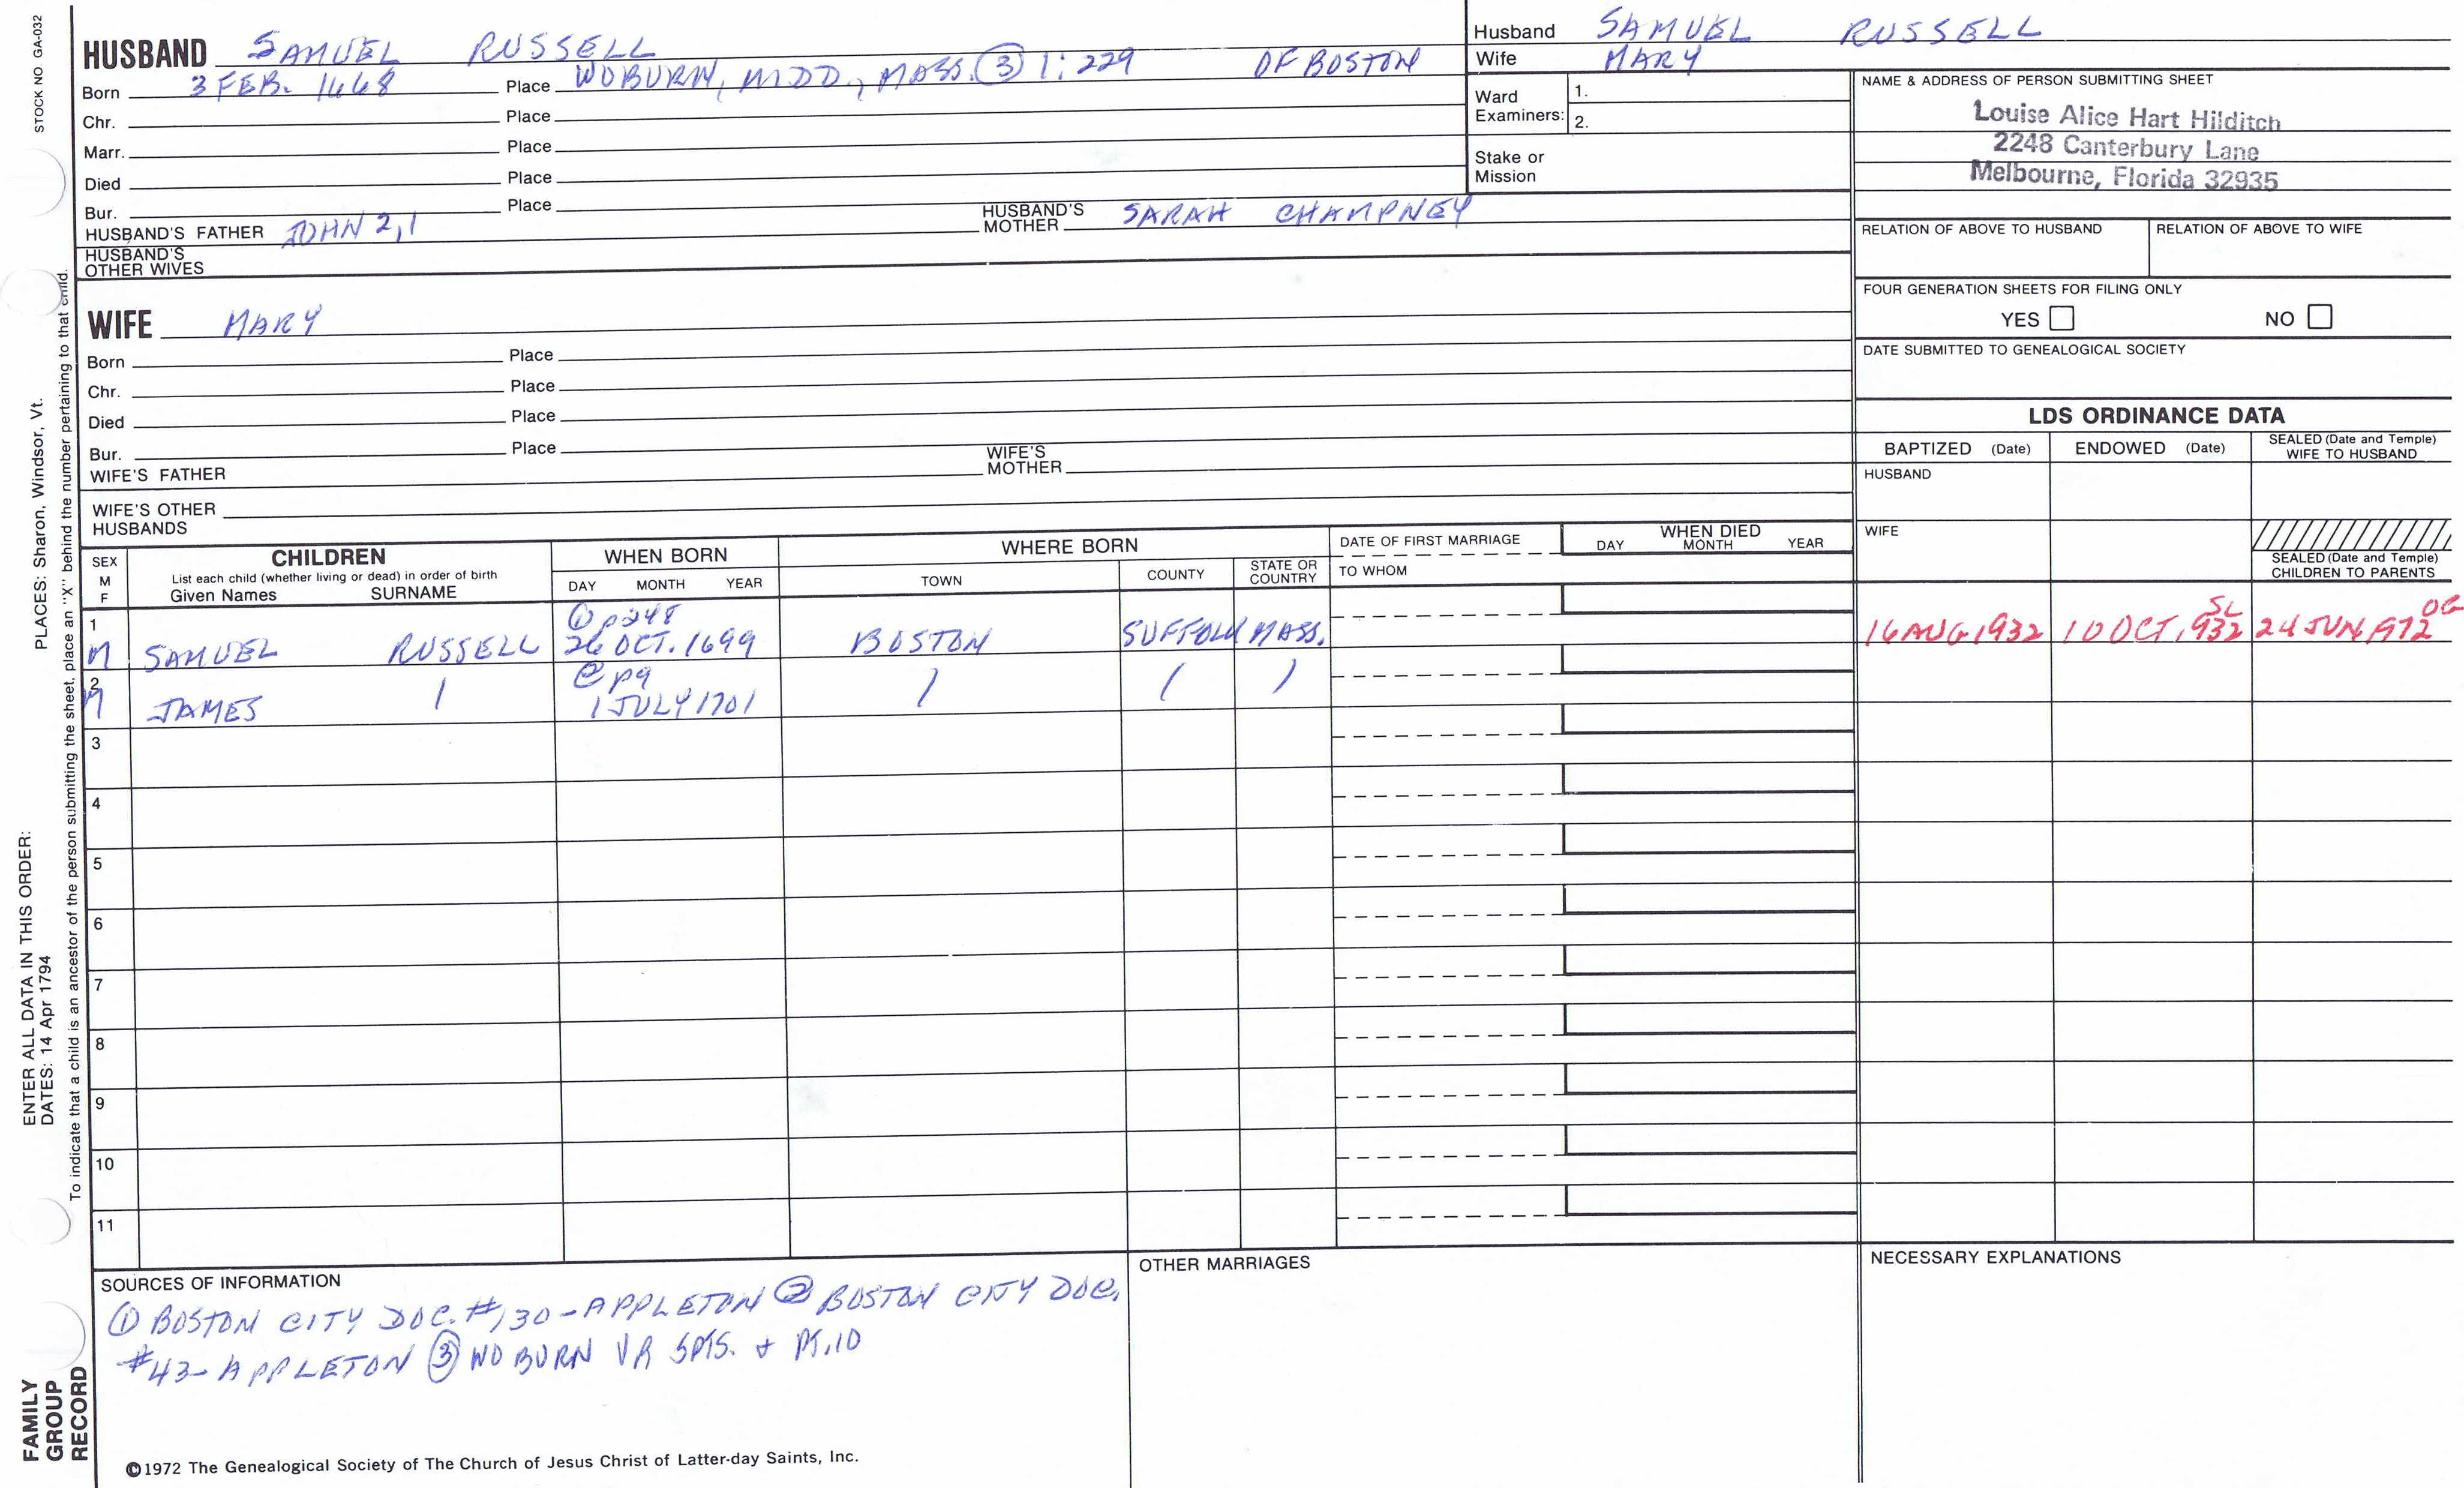 STOCK NO GA-032
HUSBAND SAMUEL RUSSELL
Born 3 FEB. 1668 Place WOBURN, MDD., MASS. ③ 1:229 OF BOSTON
Chr. Place
Marr. Place
Died Place
Bur. Place
HUSBAND'S FATHER JOHN 2,1 HUSBAND'S MOTHER SARAH CHAMPNEY
HUSBAND'S OTHER WIVES
Husband SAMUEL RUSSELL
Wife MARY
Ward Examiners: 1.
2.
Stake or Mission
NAME & ADDRESS OF PERSON SUBMITTING SHEET
Louise Alice Hart Hilditch
2248 Canterbury Lane
Melbourne, Florida 32935
RELATION OF ABOVE TO HUSBAND RELATION OF ABOVE TO WIFE
FOUR GENERATION SHEETS FOR FILING ONLY
YES NO
DATE SUBMITTED TO GENEALOGICAL SOCIETY
WIFE MARY
Born Place
Chr. Place
Died Place
Bur. Place
WIFE'S FATHER WIFE'S MOTHER
WIFE'S OTHER HUSBANDS
LDS ORDINANCE DATA
BAPTIZED (Date) ENDOWED (Date) SEALED (Date and Temple) WIFE TO HUSBAND
HUSBAND
WIFE
SEALED (Date and Temple) CHILDREN TO PARENTS
SEX M F
CHILDREN
List each child (whether living or dead) in order of birth
Given Names SURNAME
WHEN BORN
DAY MONTH YEAR
WHERE BORN
TOWN COUNTY STATE OR COUNTRY
DATE OF FIRST MARRIAGE
TO WHOM
WHEN DIED
DAY MONTH YEAR
1 ① p248
M SAMUEL RUSSELL 26 OCT. 1699 BOSTON SUFFOLK MASS. 16 AUG 1932 10 OCT 1932 SL 24 JUN 1972 OG
2 ② p9
M JAMES / 1 JULY 1701 / / /
3
4
5
6
7
8
9
10
11
SOURCES OF INFORMATION
① BOSTON CITY DOC. #130 - APPLETON ② BOSTON CITY DOC.
#43 - APPLETON ③ WOBURN VR SPTS. + PT. 10
OTHER MARRIAGES
NECESSARY EXPLANATIONS
©1972 The Genealogical Society of The Church of Jesus Christ of Latter-day Saints, Inc.
ENTER ALL DATA IN THIS ORDER:
PLACES: Sharon, Windsor, Vt.
DATES: 14 Apr 1794
To indicate that a child is an ancestor of the person submitting the sheet, place an "X" behind the number pertaining to that child.
FAMILY
GROUP
RECORD